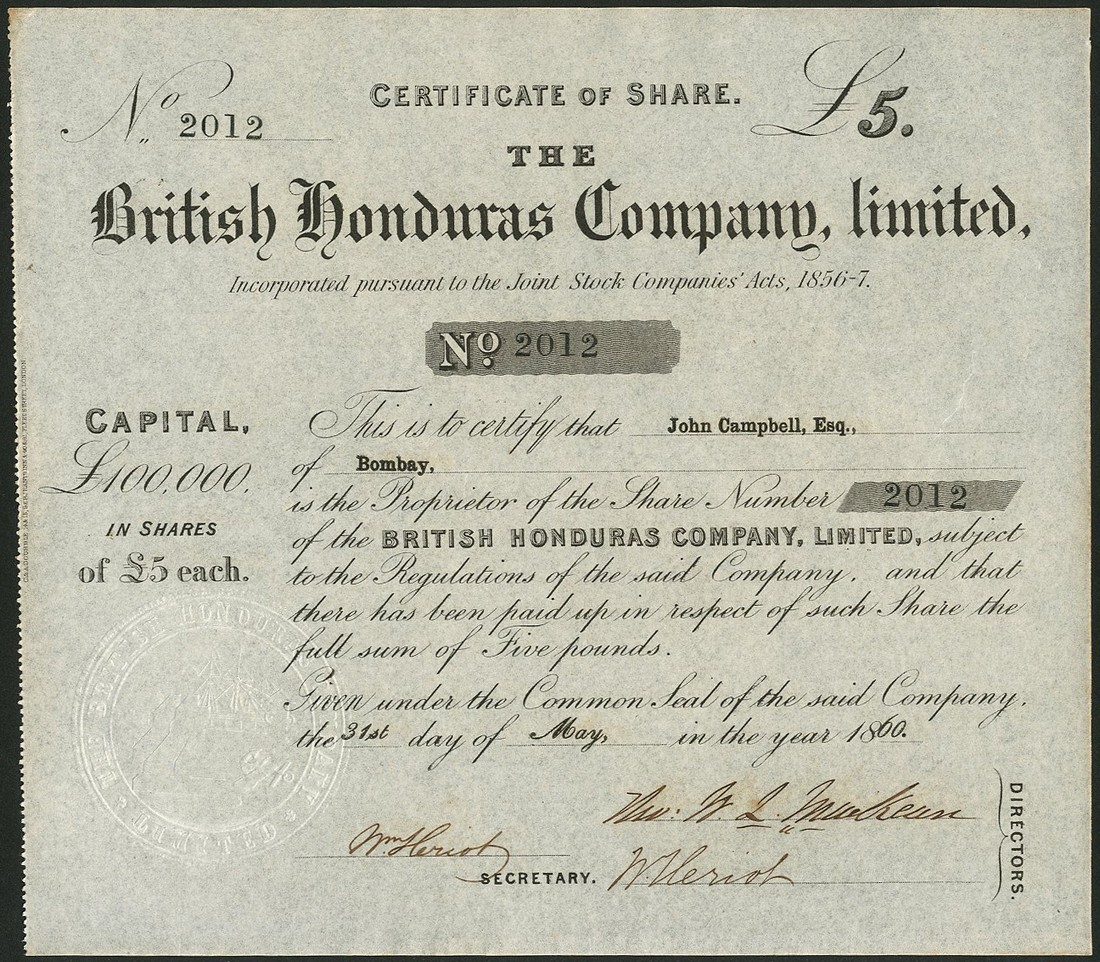 No 2012
CERTIFICATE OF SHARE.
£5.
THE
British Honduras Company, limited,
Incorporated pursuant to the Joint Stock Companies' Acts, 1856-7.
No. 2012
CAPITAL,
£100,000.
IN SHARES
of £5 each.
This is to certify that John Campbell, Esq.,
of Bombay,
is the Proprietor of the Share Number 2012
of the BRITISH HONDURAS COMPANY, LIMITED, subject
to the Regulations of the said Company. and that
there has been paid up in respect of such Share the
full sum of Five pounds.
Given under the Common Seal of the said Company.
the 31st day of May, in the year 1860.
THE BRITISH HONDURAS COMPANY LIMITED
Wm Heriot
SECRETARY.
W Heriot
DIRECTORS.